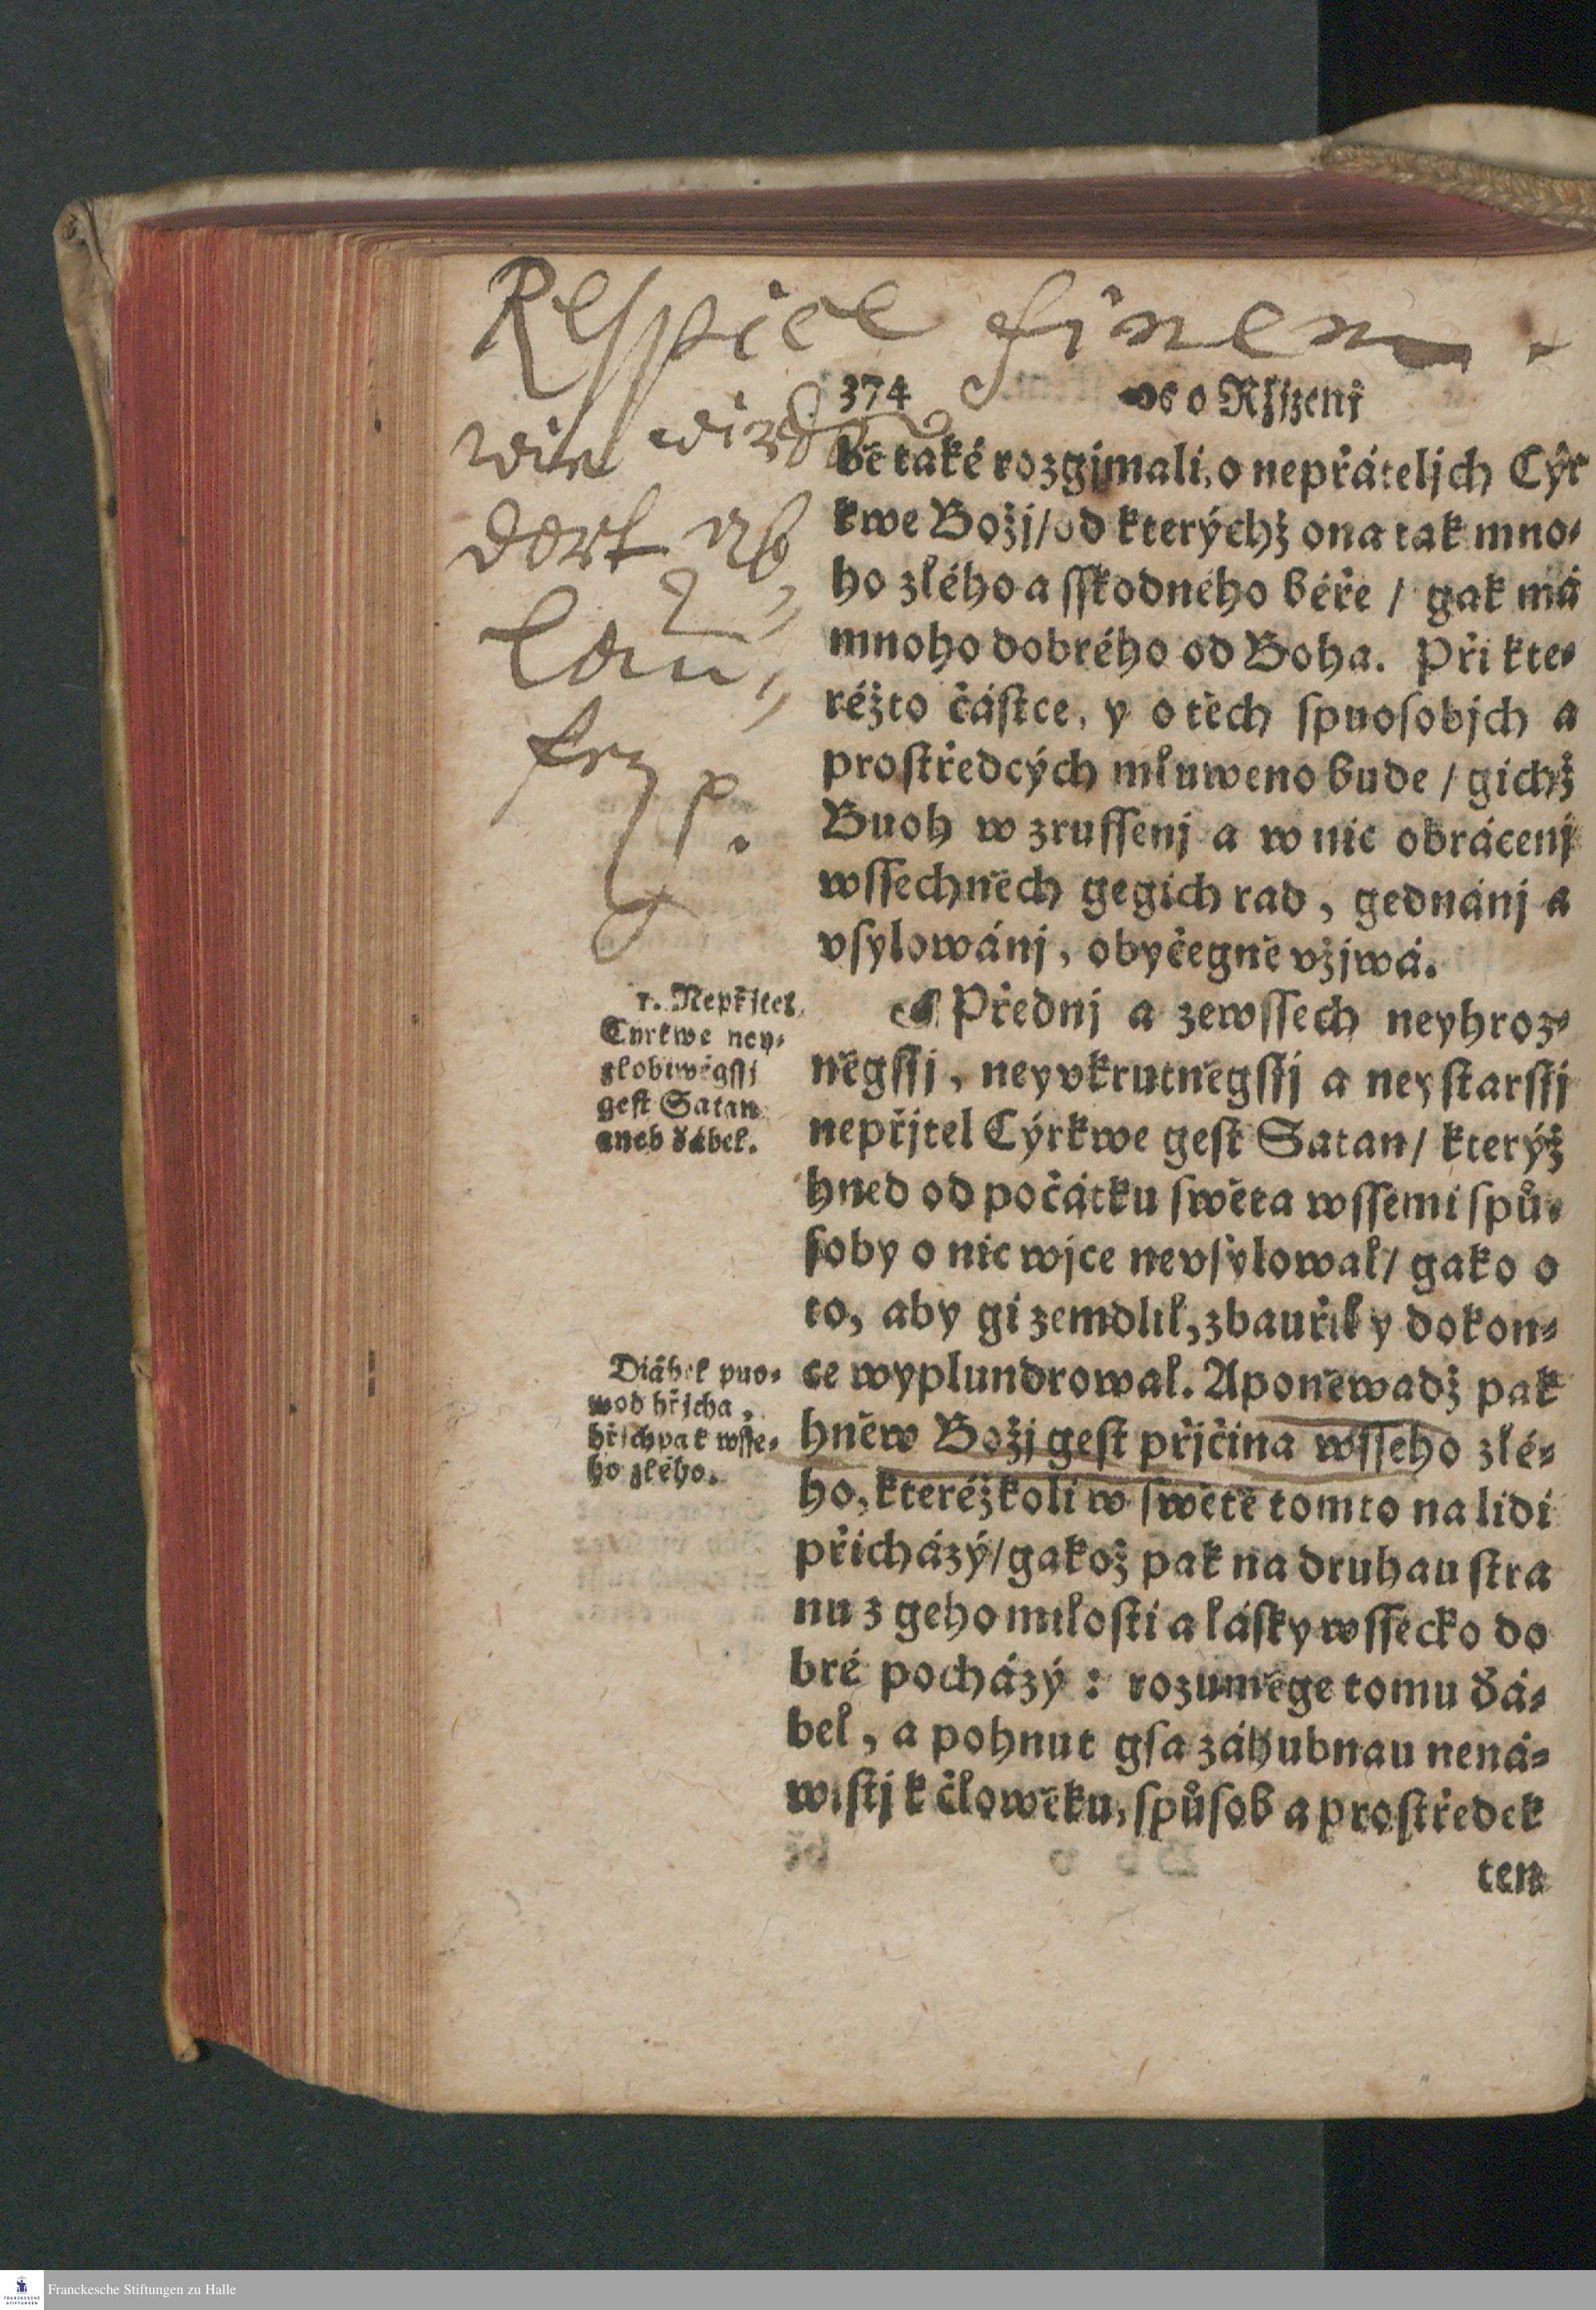 Respice finem.
wie wird
dort ab
lau
374 o Ržjzenj
bě také rozgjmali, o nepřáteljch Cýr
kwe Božj/od kterýchž ona tak mno⸗
ho zlého a sskodného béře / gak má
mnoho dobrého od Boha. Při kte⸗
réžto částce, y o těch spuosobjch a
prostředcých mluweno bude / gichž
Buoh w zrussenj a w nic obrácenj
wssechněch gegich rad, gednánj a
vsylowánj, obyčegně vžjwá.
Přednj a zewssech neyhroz⸗
něgssj, neyvkrutněgssj a neystarssj
nepřjtel Cýrkwe gest Satan/ kterýž
hned od počátku swěta wssemi spů⸗
soby o nic wjce nevsylowal/ gako o
to, aby gi zemdlil, zbauřil y dokon⸗
ce wyplundrowal. Aponěwadž pak
hněw Božj gest přjčina wsseho zlé⸗
ho, kteréžkoli w swětě tomto na lidi
přicházý/gakož pak na druhau stra
nu z geho milosti a lásky wssecko do
bré pocházý : rozuměge tomu ďá⸗
bel, a pohnut gsa záhubnau nená⸗
wistj k člowěku, spůsob a prostředek
ten
1. Nepřjtel
Cyrkwe ney⸗
zlobiwěgssj
gest Satan
aneb ďábel.
Diábel puo⸗
wod hřjcha,
hřjch pak wsse⸗
ho zlého.
Franckesche Stiftungen zu Halle